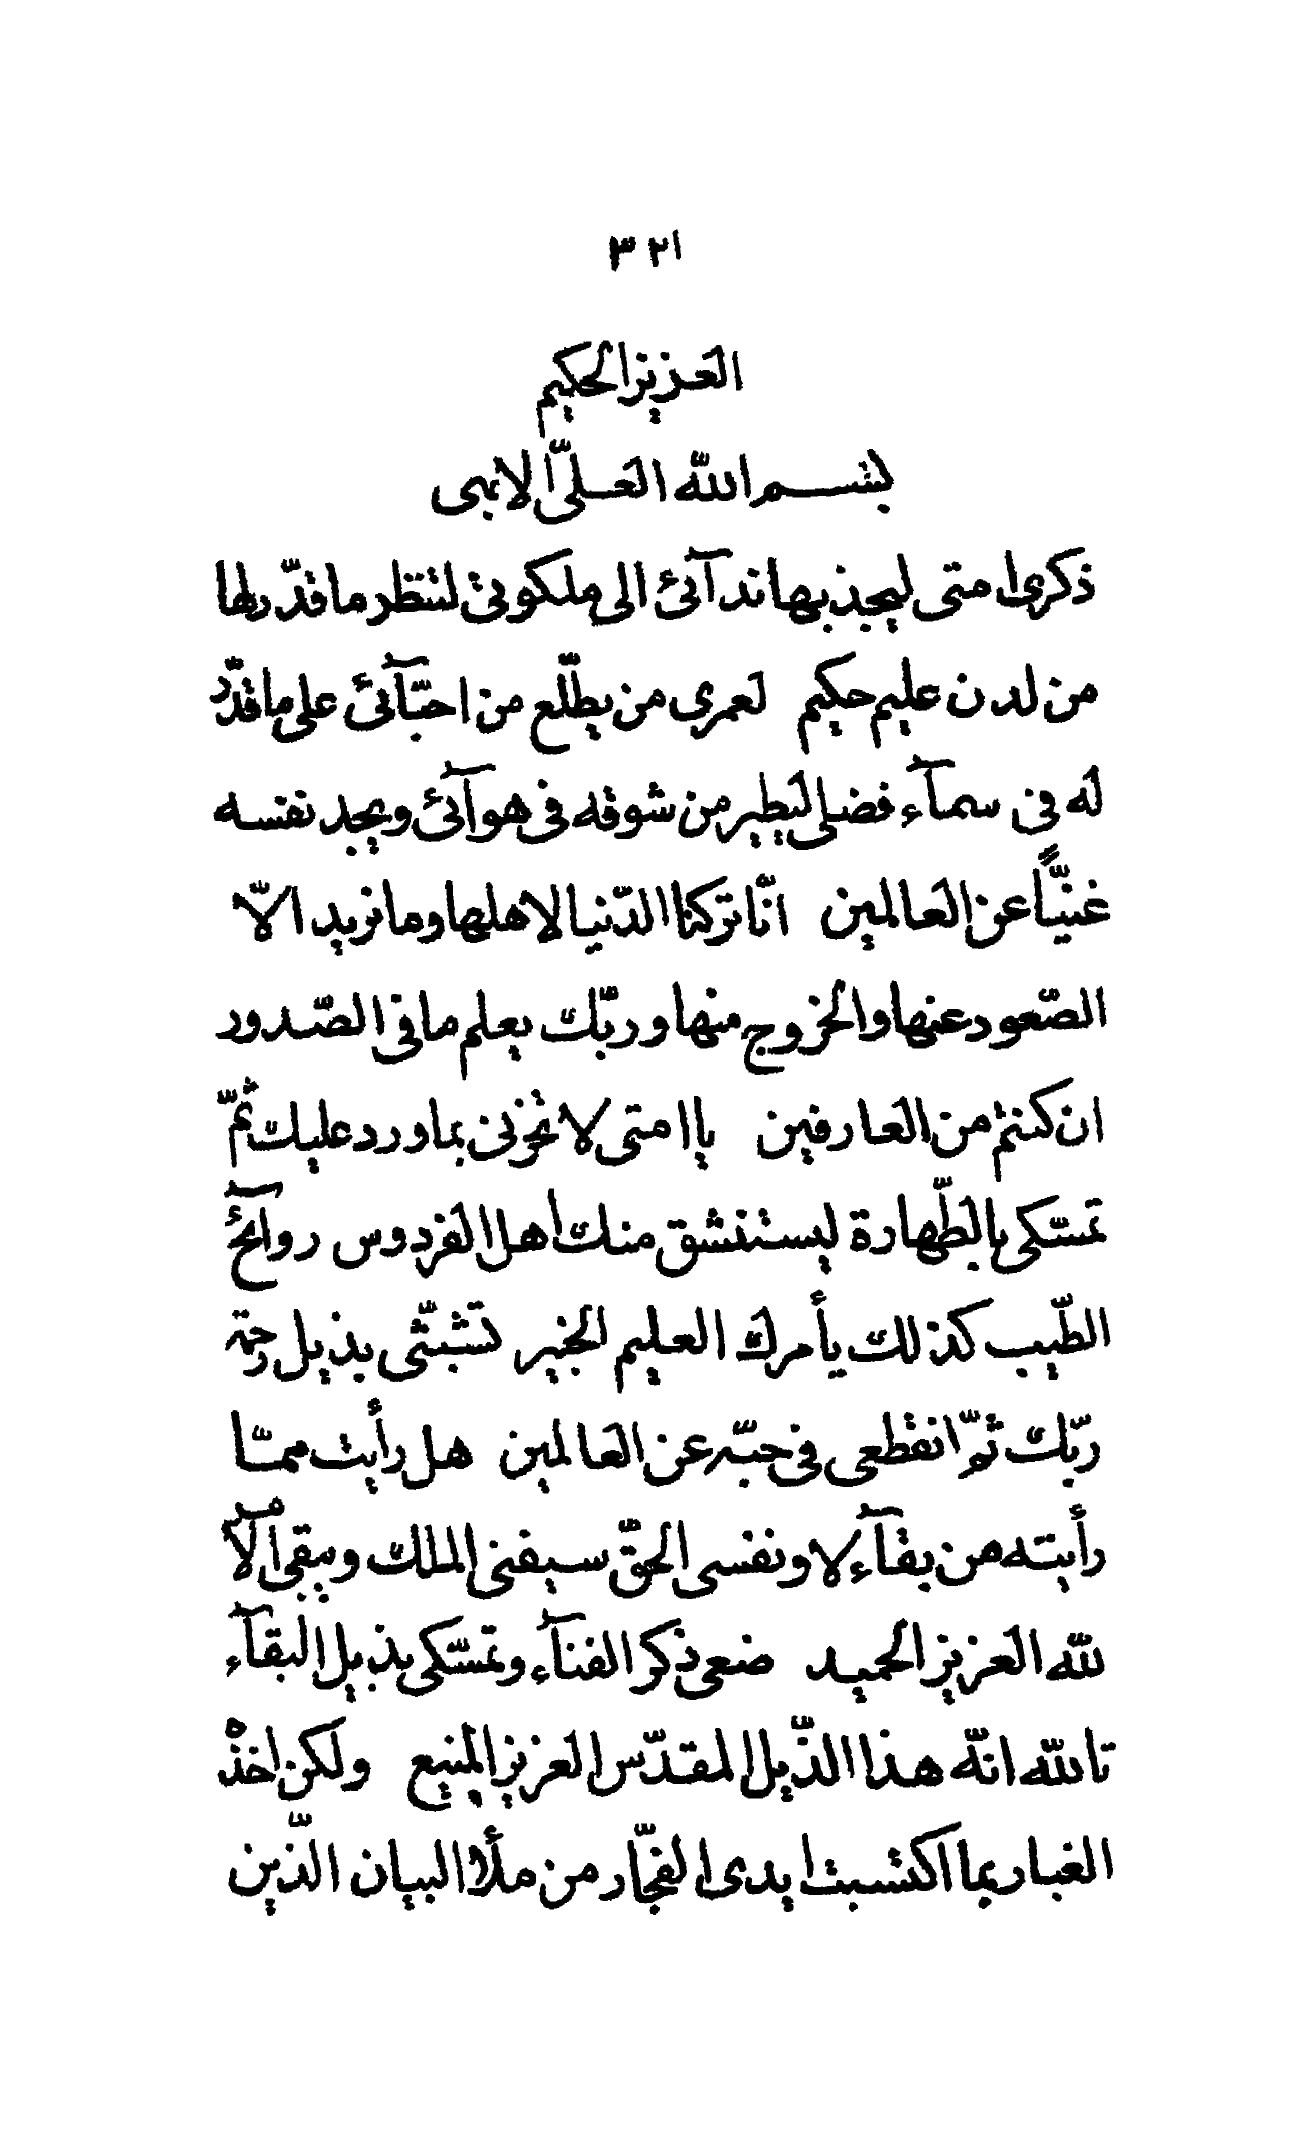 ٣٢١
العزيز الحكيم
بسم الله العلیّ الابهی
ذكری امتی ليجذبها ندآئی الی ملكوتی لتنظر ما قدّر لها
من لدن عليم حكيم لعمری من يطّلع من احبّآئی علی ما قدّر
له فی سمآء فضلی ليطير من شوقه فی هوآئی ويجد نفسه
غنيّاً عن العالمين انّا تركنا الدّنيا لاهلها وما نريد الّا
الصّعود عنها والخروج منها وربّك يعلم ما فی الصّدور
ان كنتم من العارفين يا امتی لا تحزنی بما ورد عليك ثمّ
تمسّكی بالطّهارة ليستنشق منك اهل الفردوس روآئح
الطّيب كذلك يأمرك العليم الخبير تشبّثی بذيل رحمة
ربّك ثمّ انقطعی فی حبّه عن العالمين هل رأيت ممّا
رأيته من بقآء لا ونفسی الحقّ سيفنی الملك ويبقی الامر
للّه العزيز الحميد ضعی ذكر الفنآء وتمسّكی بذيل البقآء
تاللّه انّه هذا الذّيل المقدّس العزيز المنيع ولكن اخذه
الغبار بما اكتسبت ايدی الفجّار من ملأ البيان الّذين